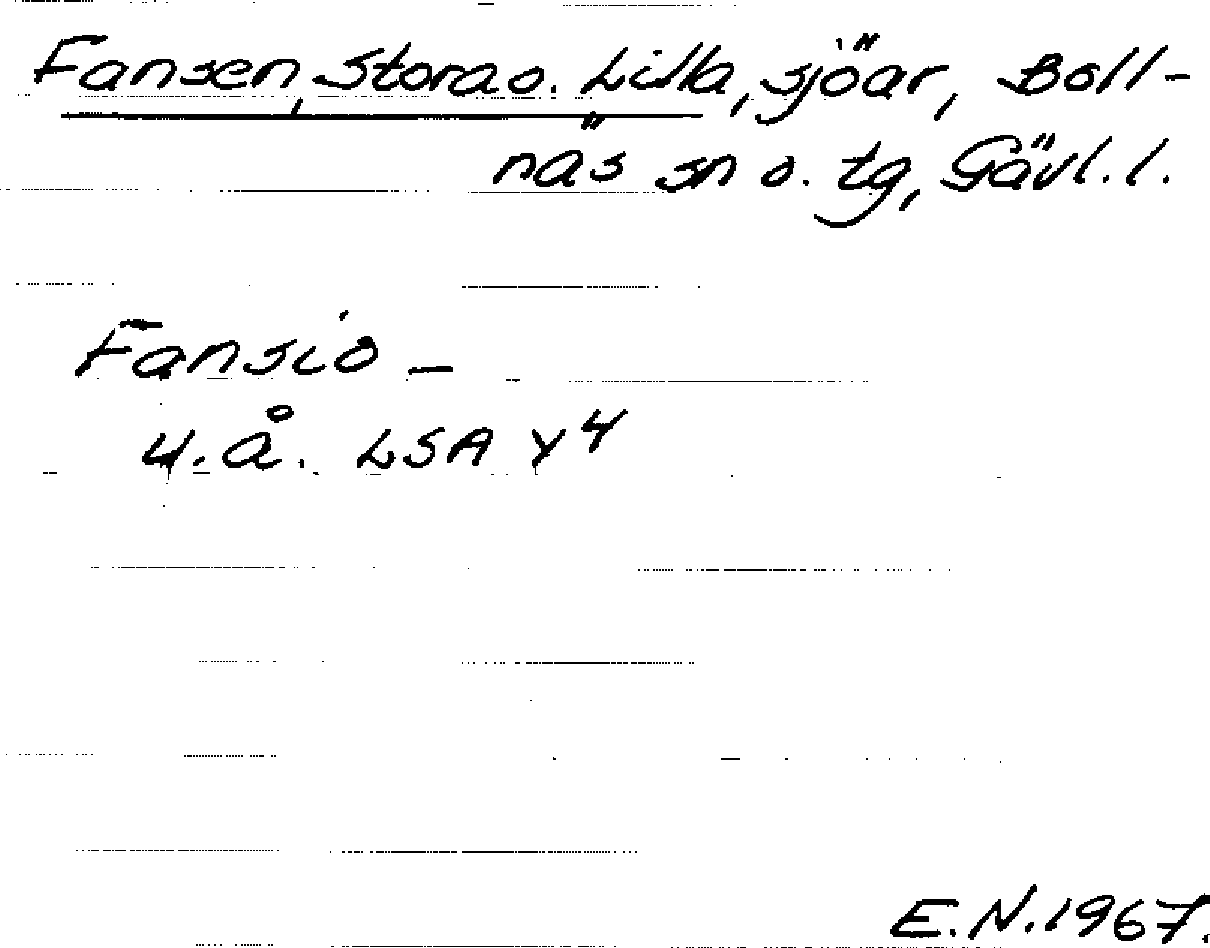 Fansen, Stora o. Lilla, sjöar, Boll-
näs sn o. tg, Gävl. l.
Fansio –
u.å. LSA Y4
E.N. 1967.